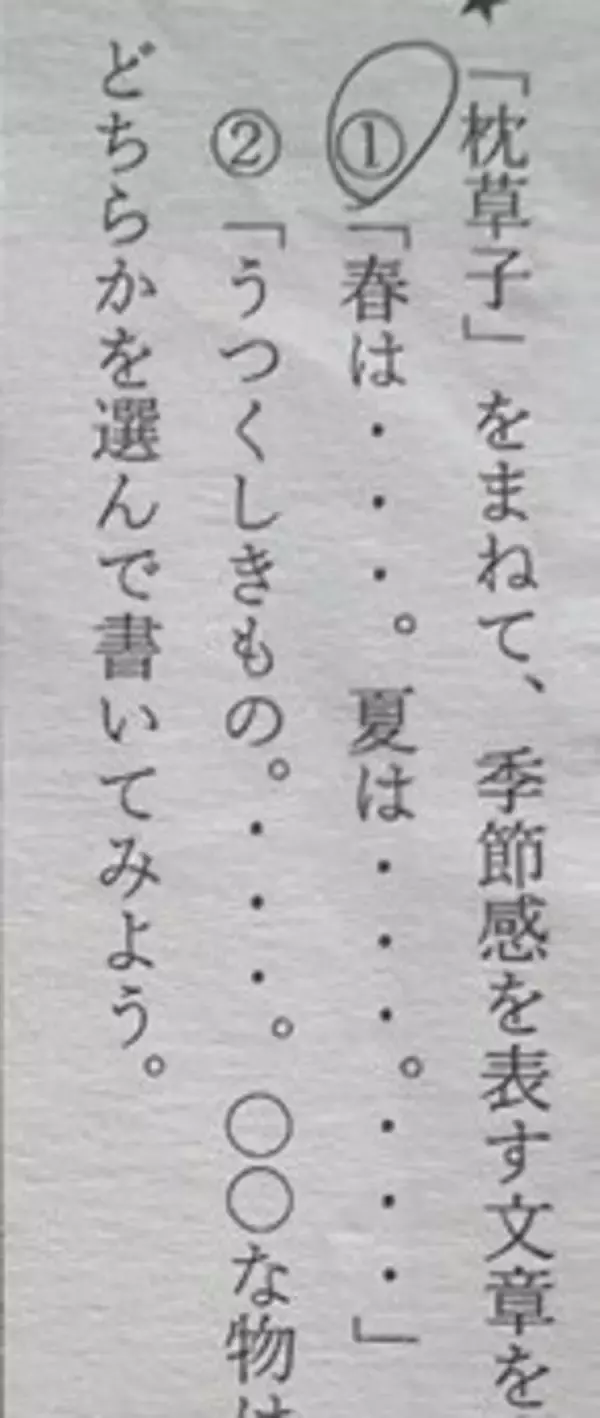 「枕草子」をまねて、季節感を表す文章を
①「春は・・・。夏は・・・。・・・」
②「うつくしきもの。・・・。〇〇な物は
どちらかを選んで書いてみよう。